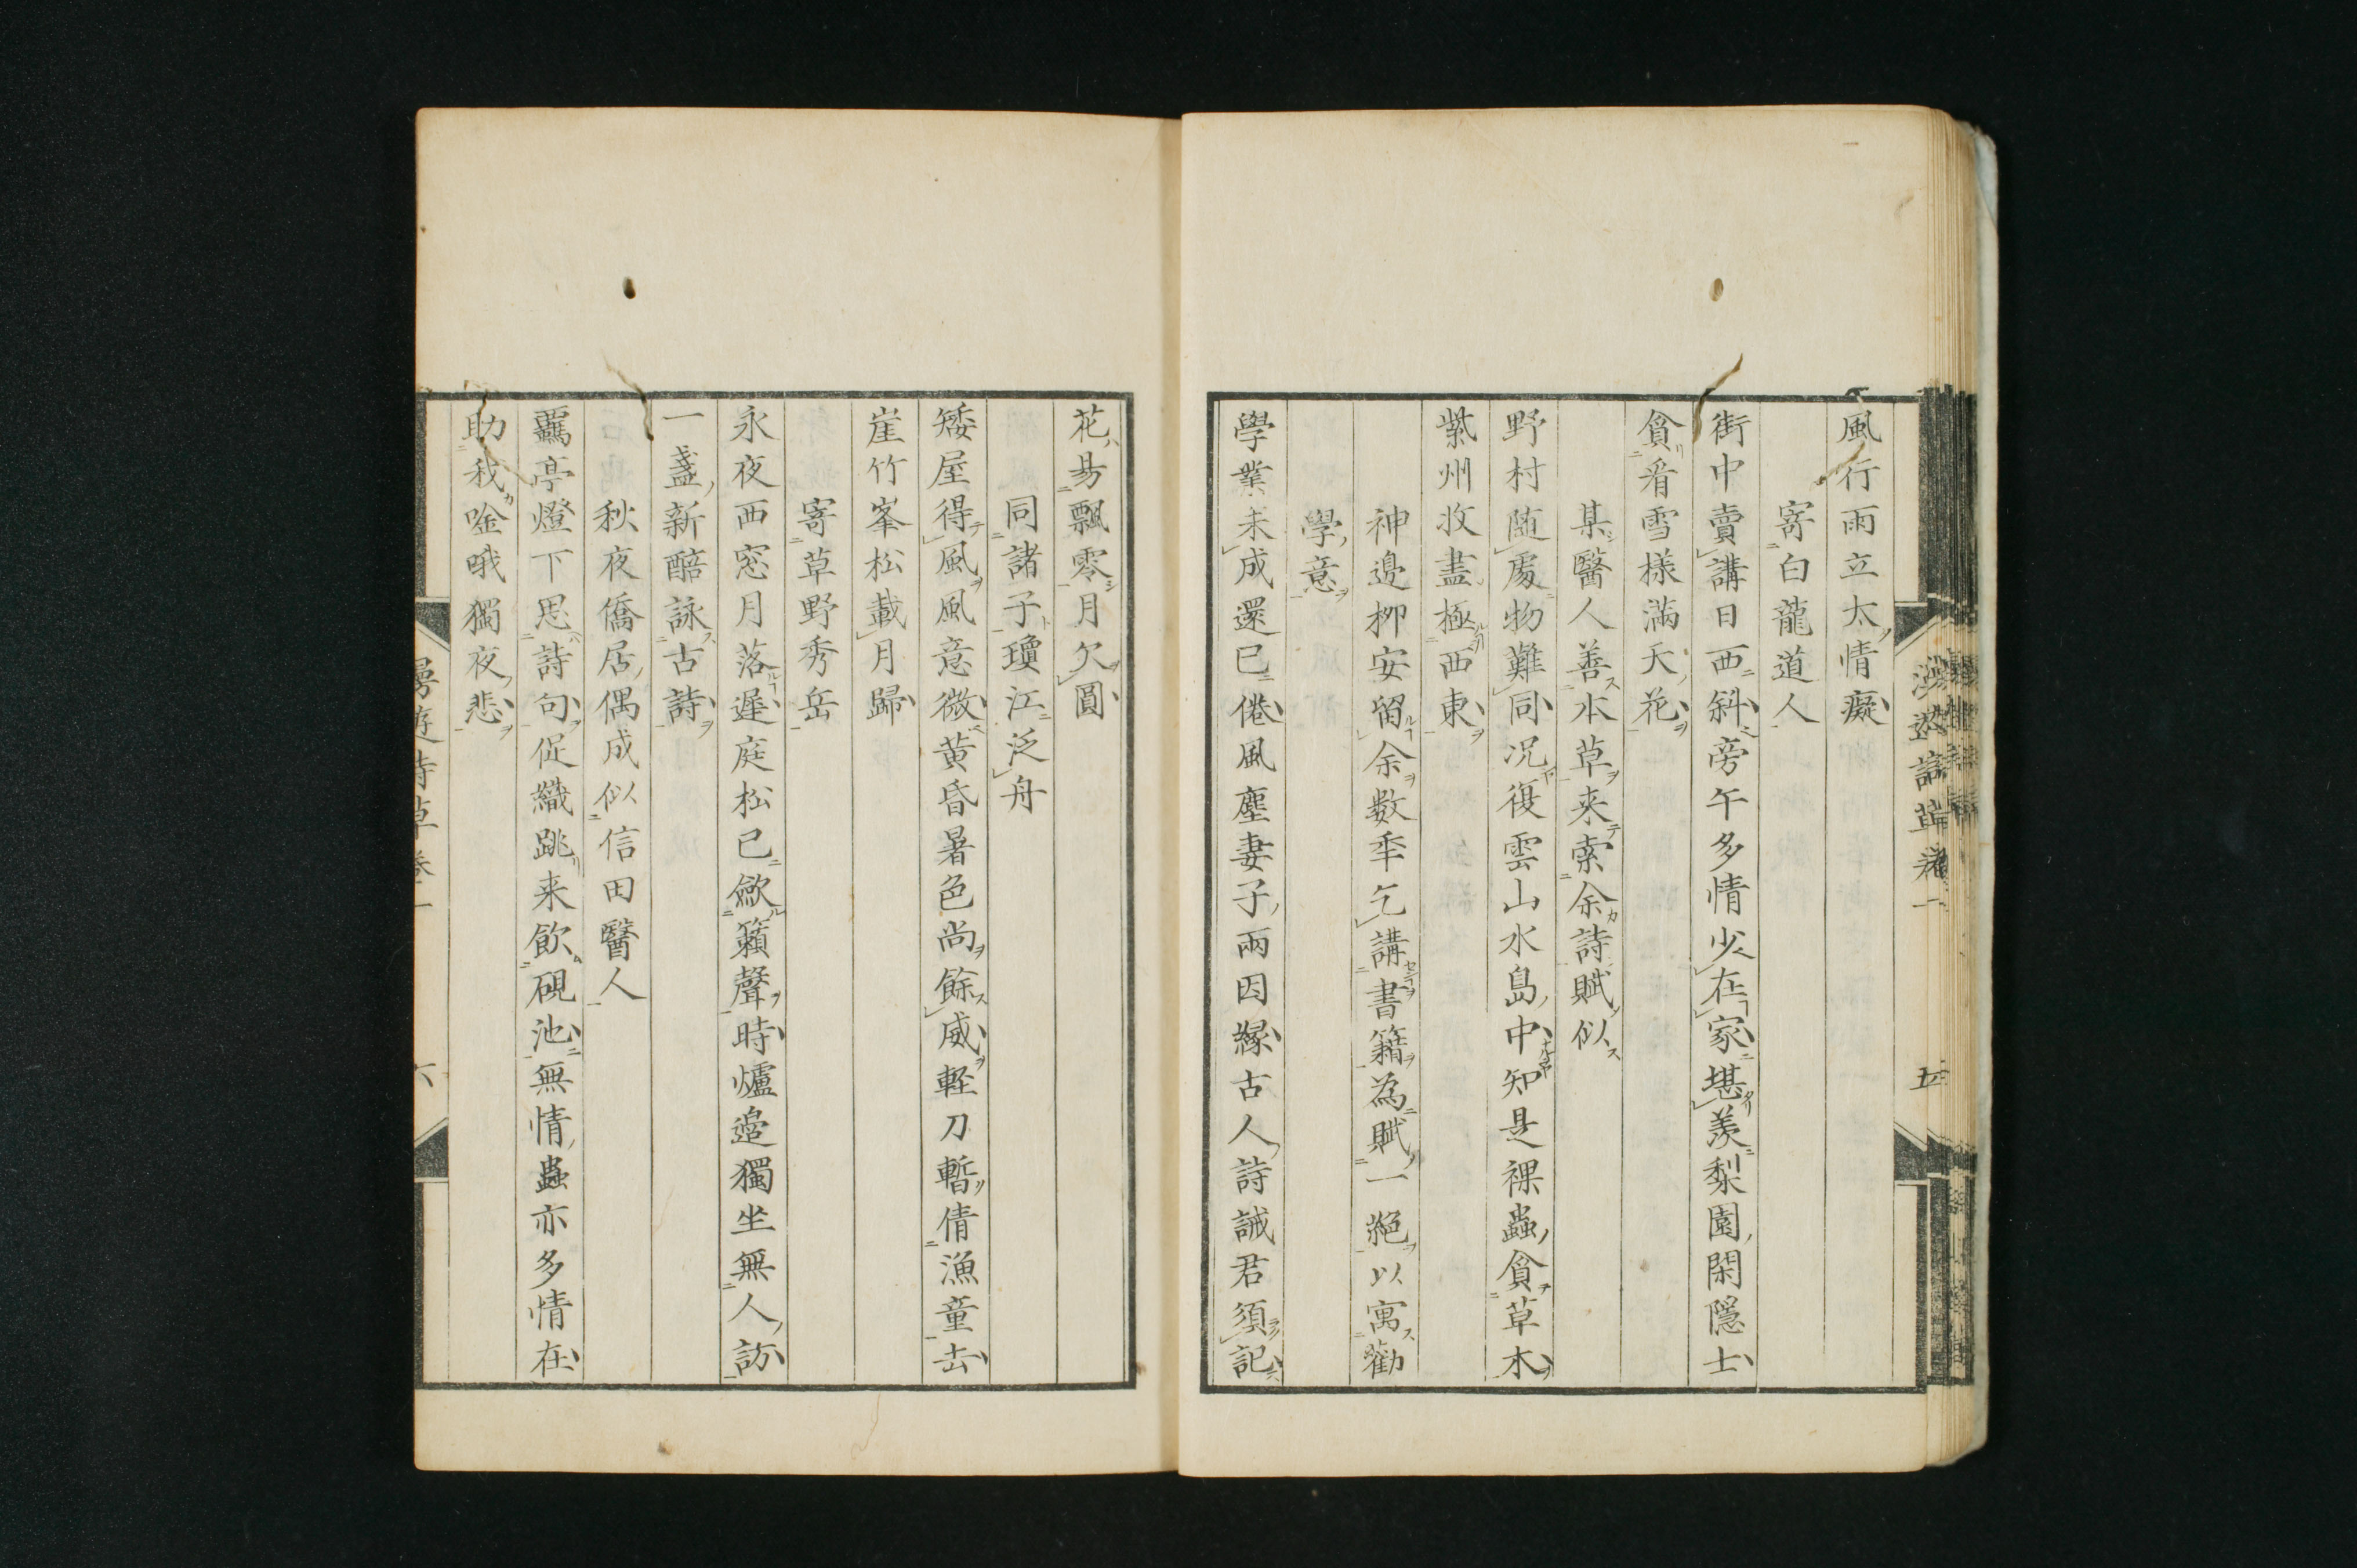 風行雨立太情癡
寄白龍道人
街中賣講日西斜旁午多情少在家堪羨梨園閑隱士
貪看雪様滿天花
某醫人善本草来索余詩賦似
野村随處物難同況復雲山水島中知是裸蟲貪草木
紫州收盡極西東
神邉柳安留余数年乞講書籍為賦一絕以寓勸
學意
學業未成還已倦風塵妻子兩因緣古人詩誡君須記
五
花易飄零月欠圓
同諸子瓊江泛舟
矮屋得風風意微黃昏暑色尚餘威輕刀暫倩漁童去
崖竹峯松載月歸
寄草野秀岳
永夜西窓月落遲庭松已歛籟聲時爐邉獨坐無人訪
一盞新醅詠古詩
秋夜僑居偶成似信田醫人
亭燈下思詩句促織跳来飲硯池無情蟲亦多情在
助我唫哦獨夜悲
遊詩草卷一
六